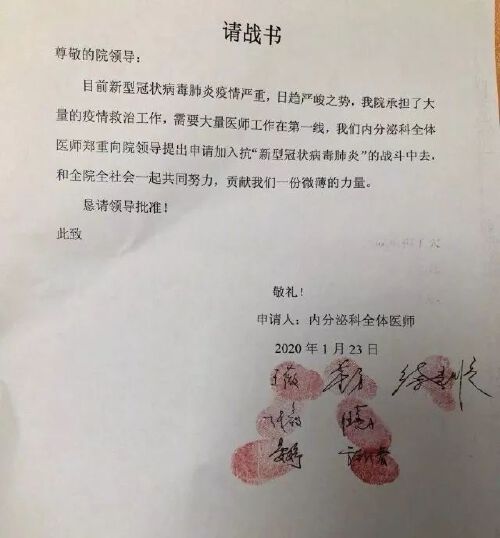 请战书
尊敬的院领导：
目前新型冠状病毒肺炎疫情严重，日趋严峻之势，我院承担了大
量的疫情救治工作，需要大量医师工作在第一线，我们内分泌科全体
医师郑重向院领导提出申请加入抗“新型冠状病毒肺炎”的战斗中去，
和全院全社会一起共同努力，贡献我们一份微薄的力量。
恳请领导批准！
此致
敬礼！
申请人：内分泌科全体医师
2020 年 1 月 23 日